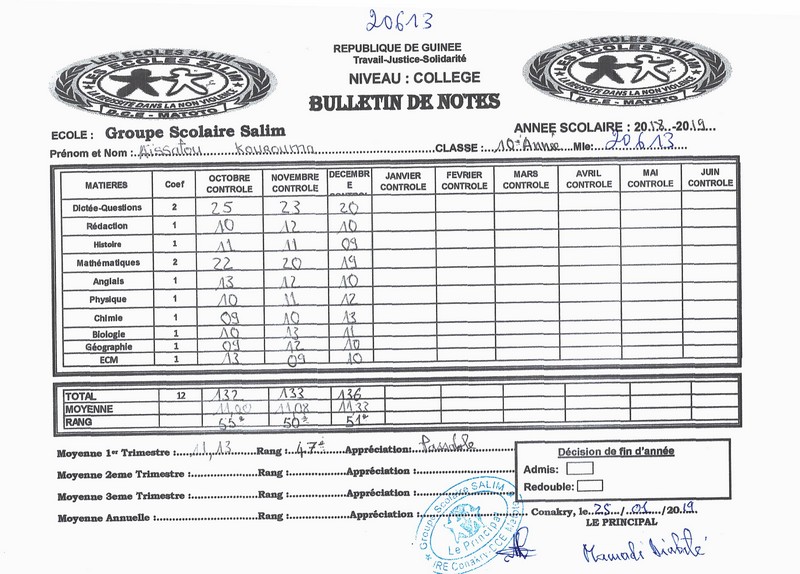 20613
REPUBLIQUE DE GUINEE
Travail-Justice-Solidarité
NIVEAU : COLLEGE
BULLETIN DE NOTES
LES ECOLES SALIM
LES ECOLES SALIM
D.C.E - MATOTO
LES ECOLES SALIM
LES ECOLES SALIM
D.C.E - MATOTO
ECOLE : Groupe Scolaire Salim
ANNEE SCOLAIRE : 2018 -2019
Prénom et Nom : Aissatou Kourouma CLASSE : 10e Année Mle: 20613
MATIERES Coef OCTOBRE CONTROLE NOVEMBRE CONTROLE DECEMBRE CONTROL JANVIER CONTROLE FEVRIER CONTROLE MARS CONTROLE AVRIL CONTROLE MAI CONTROLE JUIN CONTROLE
Dictée-Questions 2 25 23 20
Rédaction 1 10 12 10
Histoire 1 11 11 09
Mathématiques 2 22 20 19
Anglais 1 13 12 10
Physique 1 10 11 12
Chimie 1 09 10 13
Biologie 1 10 13 11
Géographie 1 09 12 10
ECM 1 13 09 10
TOTAL 12 132 133 136
MOYENNE 11,00 11,08 11,33
RANG 55e 50e 51e
Moyenne 1er Trimestre : 11,13 Rang : 47e Appréciation: Passable
Moyenne 2eme Trimestre : Rang : Appréciation :
Moyenne 3eme Trimestre : Rang : Appréciation :
Moyenne Annuelle : Rang : Appréciation :
Décision de fin d'année
Admis:
Redouble:
Groupe Scolaire SALIM
Le Principal
IRE Conakry
Conakry, le 25/01/2019
LE PRINCIPAL
Mamadi Diabaté